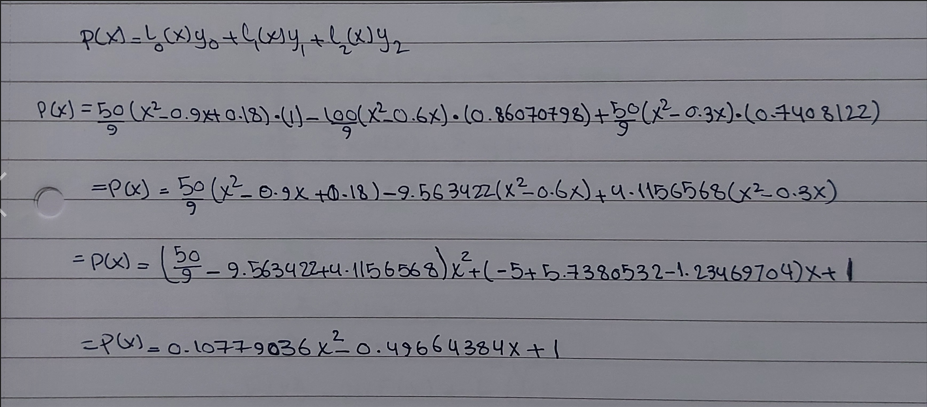 P(x) = L₀(x)y₀ + L₁(x)y₁ + L₂(x)y₂
P(x) = 50/9 (x² - 0.9x + 0.18)·(1) - 100/9 (x² - 0.6x)·(0.86070798) + 50/9 (x² - 0.3x)·(0.7408122)
= P(x) = 50/9 (x² - 0.9x + 0.18) - 9.563422(x² - 0.6x) + 4.1156568(x² - 0.3x)
= P(x) = (50/9 - 9.563422 + 4.1156568)x² + (-5 + 5.7380532 - 1.23469704)x + 1
= P(x) = 0.10779036x² - 0.49664384x + 1